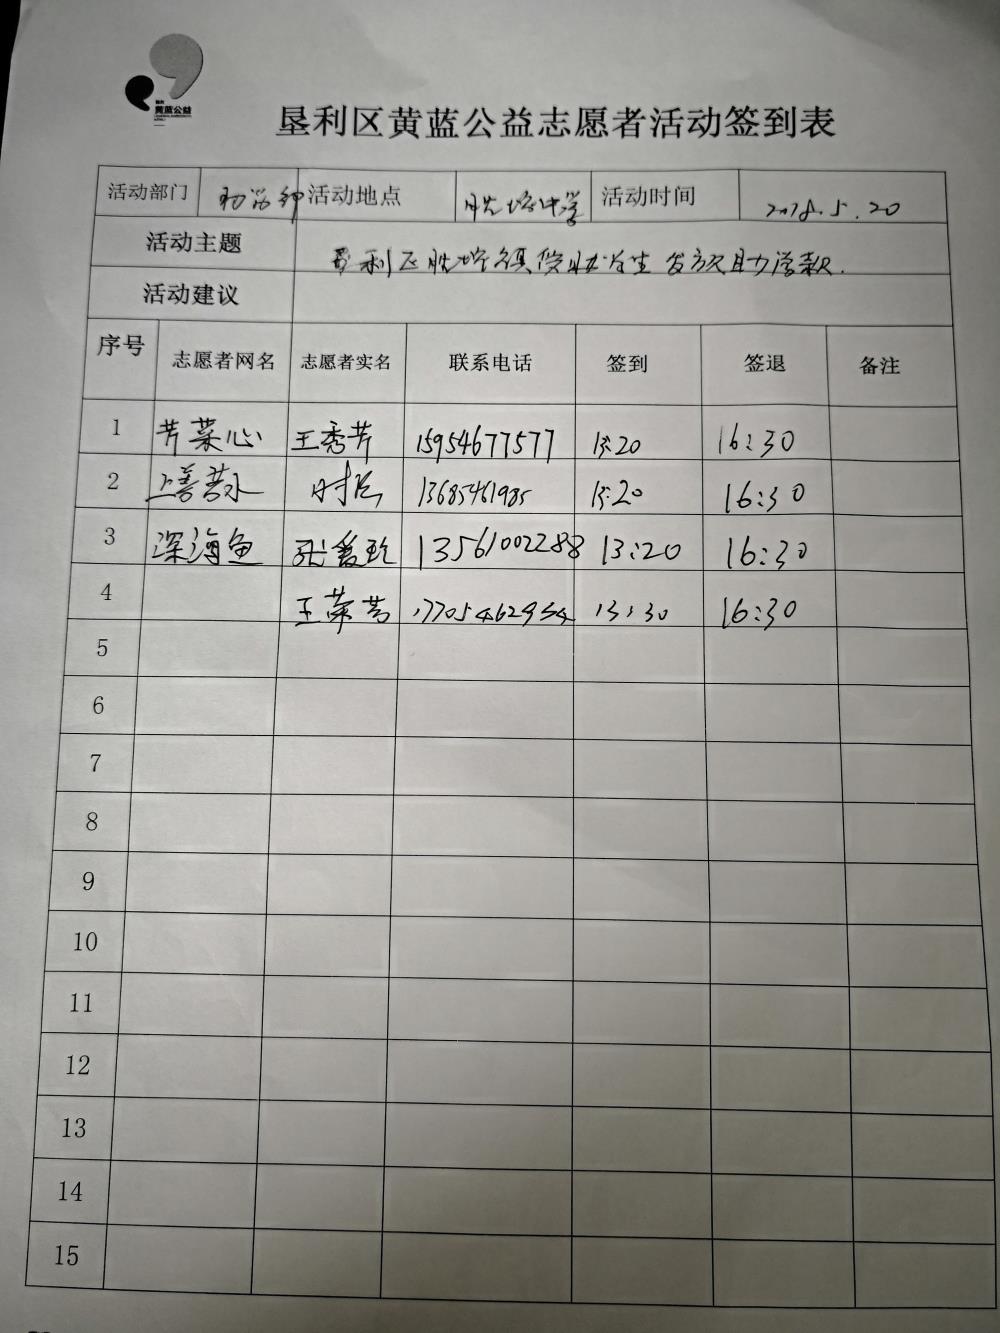 黄蓝公益
垦利区黄蓝公益志愿者活动签到表
活动部门 助学部 活动地点 胜坨中学 活动时间 2018.5.20
活动主题 垦利区胜坨镇受助学生发放助学款.
活动建议
序号 志愿者网名 志愿者实名 联系电话 签到 签退 备注
1 芹菜心 王秀芹 15954677577 13:20 16:30
2 上善若水 13685461985 13:20 16:30
3 深海鱼 张爱玲 13561002288 13:20 16:30
4 王荣芳 17705462954 13:30 16:30
5
6
7
8
9
10
11
12
13
14
15